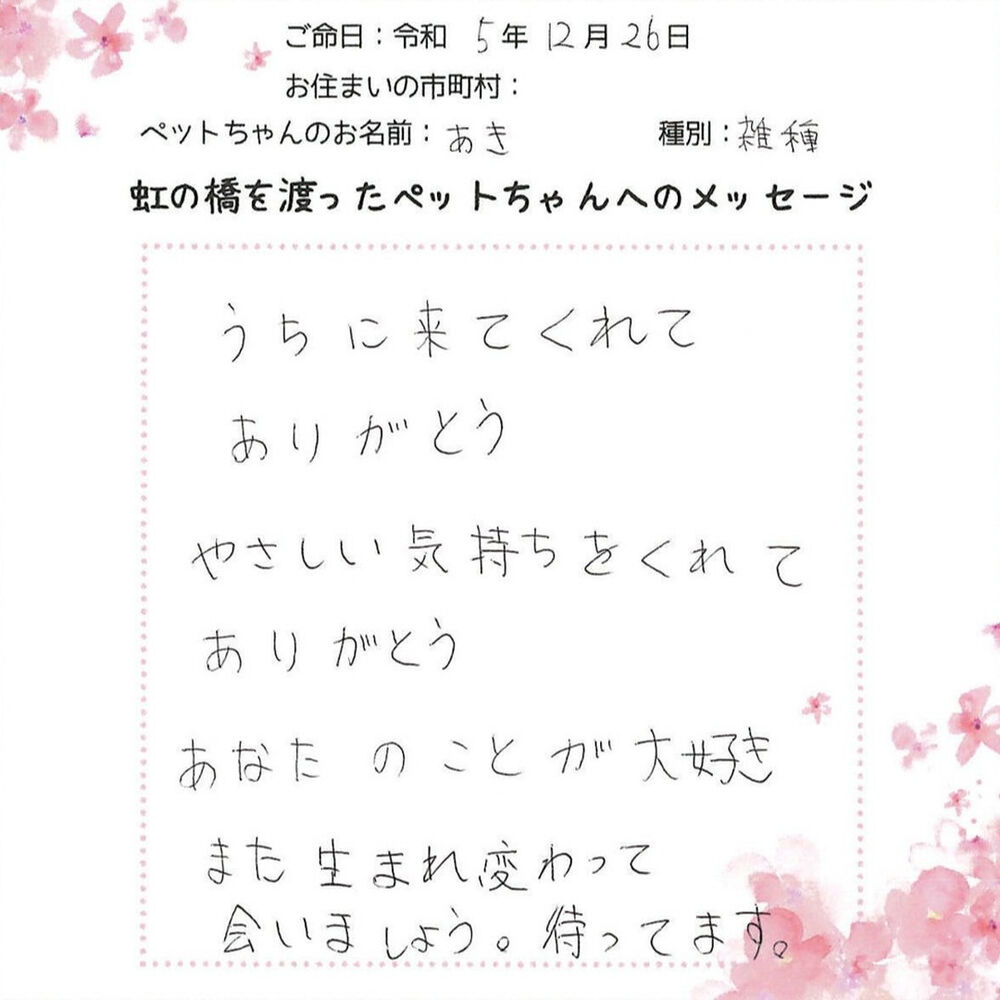 ご命日：令和 5年 12月 26日
お住まいの市町村：
ペットちゃんのお名前：あき 種別：雑種
虹の橋を渡ったペットちゃんへのメッセージ
うちに来てくれて
ありがとう
やさしい気持ちをくれて
ありがとう
あなたのことが大好き
また生まれ変わって
会いましょう。待ってます。